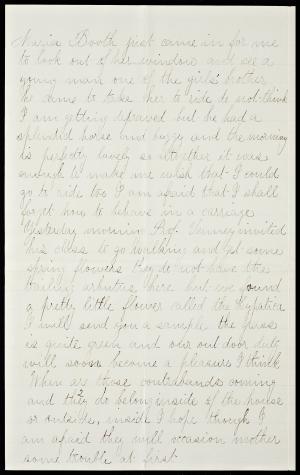 Maria Booth just came in for me
to look out of her window and see a
young man one of the girls' brother
he came to take her to ride do not think
I am getting depraved but he had a
splendid horse and buggy and the morning
is perfectly lovely so altogether it was
enough to make me wish that I could
go to ride too I am afraid that I shall
forget how to behave in a carriage
Yesterday mornin Prof. Tenney invited
his class to go walking and get some
spring flowers they do not have the
trailing arbutus here but we found
a pretty little flower called the Hepatica
I will send you a sample the grass
is quite green and our out door duty
will soon become a pleasure I think
When are those contrabands coming
and do they belong inside of the house
or outside, inside I hope though I
am afraid they will occasion mother
some trouble at first